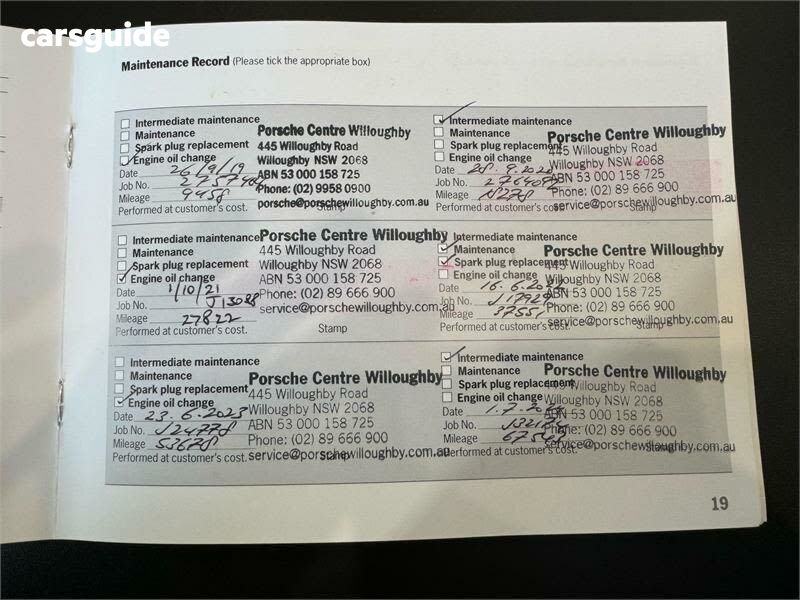 carsguide
Maintenance Record (Please tick the appropriate box)
Intermediate maintenance
Maintenance
Spark plug replacement
Engine oil change
Date 26/9/19
Job No.
Mileage 9958
Performed at customer's cost.
Porsche Centre Willoughby
445 Willoughby Road
Willoughby NSW 2068
ABN 53 000 158 725
Phone: (02) 9958 0900
porsche@porschewilloughby.com.au
Stamp
Intermediate maintenance
Maintenance
Spark plug replacement
Engine oil change
Date 28.9.2020
Job No.
Mileage
Performed at customer's cost.
Porsche Centre Willoughby
445 Willoughby Road
Willoughby NSW 2068
ABN 53 000 158 725
Phone: (02) 89 666 900
service@porschewilloughby.com.au
Stamp
Intermediate maintenance
Maintenance
Spark plug replacement
Engine oil change
Date 1/10/21
Job No. J13028
Mileage 27822
Performed at customer's cost.
Porsche Centre Willoughby
445 Willoughby Road
Willoughby NSW 2068
ABN 53 000 158 725
Phone: (02) 89 666 900
service@porschewilloughby.com.au
Stamp
Intermediate maintenance
Maintenance
Spark plug replacement
Engine oil change
Date
Job No.
Mileage 37551
Performed at customer's cost.
Porsche Centre Willoughby
445 Willoughby Road
Willoughby NSW 2068
ABN 53 000 158 725
Phone: (02) 89 666 900
service@porschewilloughby.com.au
Stamp
Intermediate maintenance
Maintenance
Spark plug replacement
Engine oil change
Date 23.6.2023
Job No. J24778
Mileage 53678
Performed at customer's cost.
Porsche Centre Willoughby
445 Willoughby Road
Willoughby NSW 2068
ABN 53 000 158 725
Phone: (02) 89 666 900
service@porschewilloughby.com.au
Stamp
Intermediate maintenance
Maintenance
Spark plug replacement
Engine oil change
Date
Job No.
Mileage
Performed at customer's cost.
Porsche Centre Willoughby
445 Willoughby Road
Willoughby NSW 2068
ABN 53 000 158 725
Phone: (02) 89 666 900
service@porschewilloughby.com.au
Stamp
19